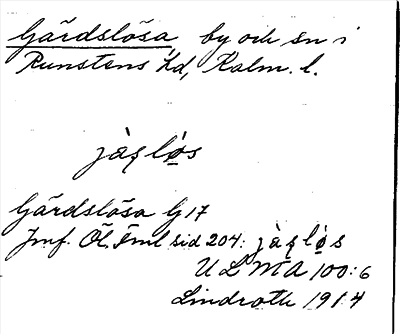 Gärdslösa by och sn i
Runstens hd, Kalm. l.
jàʂlo̩s
Gärdslösa G 17
Jmf. Öl. Fml sid 204: jàʂlo̩s
ULMA 100:6
Lindroth 1914